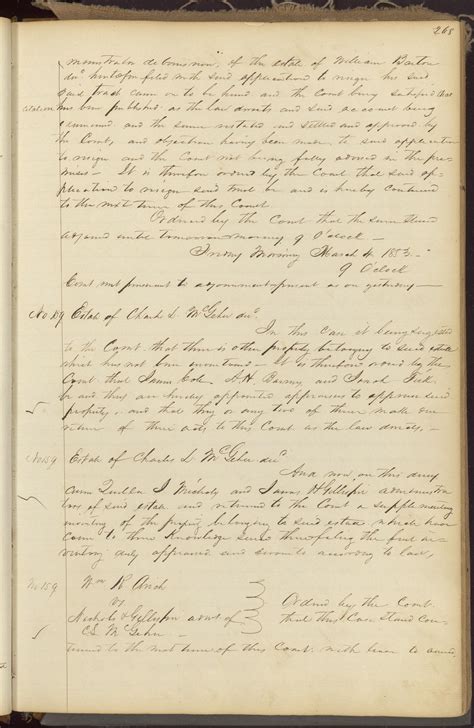 268
ministrator debonis non, of the estate of William Barton
dec heretofore filed with said application to resign his said
said trust came on to be heard and the Court being satisfied that
citation has been published as the law directs and said account being
examined and the same restated and settled and approved by
the Court, and objection having been made to said application
to resign and the Court not being fully advised in the pre-
mises - It is therefore ordered by the Court that said ap-
plication to resign said trust be and is hereby continued
to the next term of this Court
Ordered by the Court that the same stand
adjourned until tomorrow morning 9 O'clock -
Friday Morning March 4, 185
9 O'clock
Court met pursuant to adjournment - present as on yesterday -
No 159 Estate of Charles L McGehee dec.
In this case it being suggested
to the Court that there is other property belonging to said estate
which has not been inventoried - It is therefore ordered by the
Court that James Cole, A.H. and
be and they are hereby appointed appraisers to appraise said
property, and that they or any two of them make due
return of their acts to this Court as the law directs. -
No 159 Estate of Charles L McGehee dec
And now on this day
came J Nichols and James H Gillespie administra
tors of said estate and returned to the Court a supplementary
inventory of the property belonging to said estate which have
come to their knowledge since the first in-
ventory duly appraised and sworn to according to law,
No 159 Wm R
vs
Nichols & Gillespie admr of
C L McGehee -
Ordered by the Court
that this Case Stand Con-
tinued to the next term of this Court. with leave to amend.